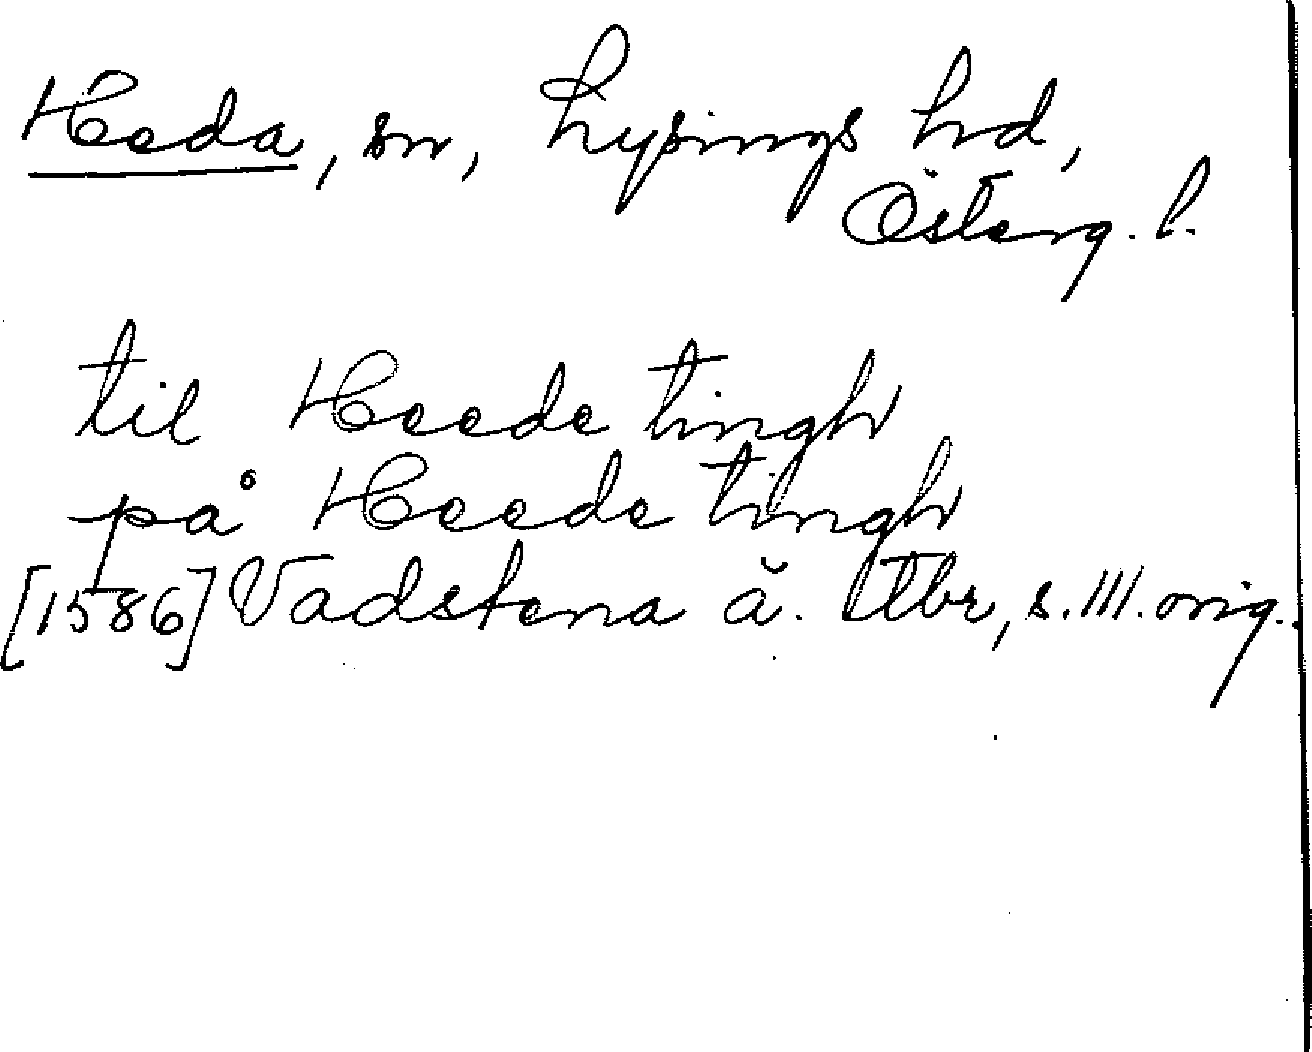 Heda, sn, Lysings hd,
Österg. l.
til Heede tingh
på Heede tingh
[1586] Vadstena ä. tbr, s. 111. orig.